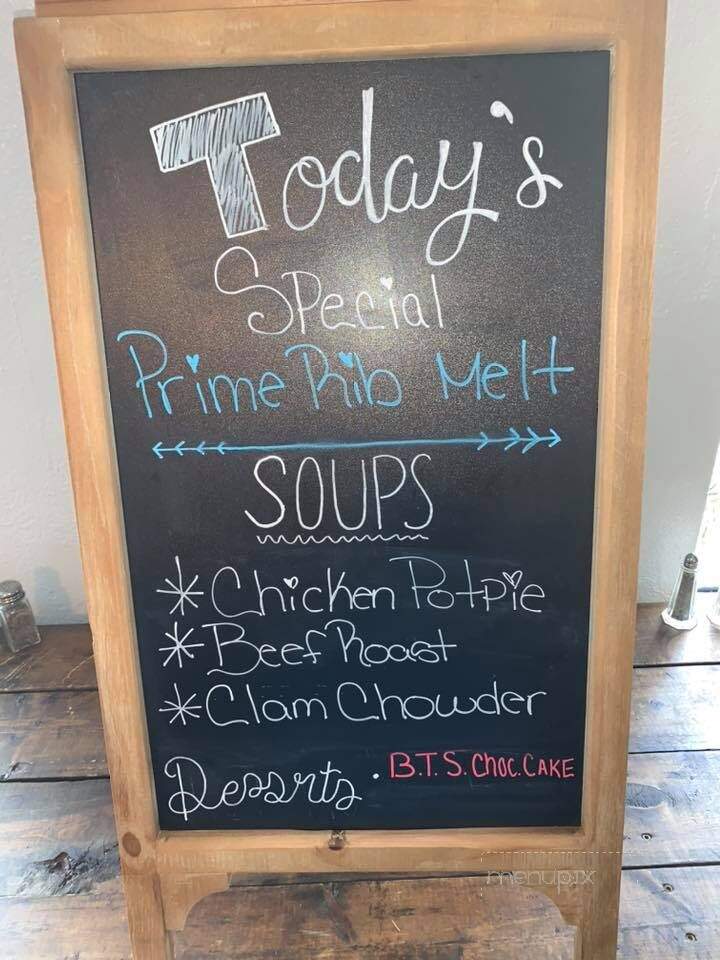 Today's
Special
Prime Rib Melt
SOUPS
* Chicken Potpie
* Beef Roast
* Clam Chowder
Dessrts . B.T.S. CHOC. CAKE
menupix